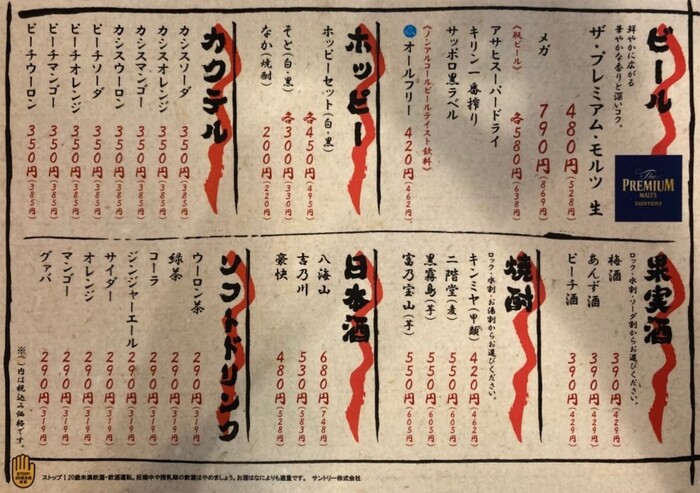 ビール
鮮やかに広がる
華やかな香りと深いコク。
ザ・プレミアム・モルツ 生
480円(528円)
メガ
790円(869円)
The
PREMIUM
MALT'S
SUNTORY
《瓶ビール》
各580円(638円)
アサヒスーパードライ
キリン一番搾り
サッポロ黒ラベル
《ノンアルコールビールテイスト飲料》
オールフリー 420円(462円)
ホッピー
ホッピーセット(白・黒)
各450円(495円)
そと(白・黒)
各300円(330円)
なか(焼酎)
200円(220円)
カクテル
カシスソーダ 350円(385円)
カシスオレンジ 350円(385円)
カシスマンゴー 350円(385円)
カシスウーロン 350円(385円)
ピーチソーダ 350円(385円)
ピーチオレンジ 350円(385円)
ピーチマンゴー 350円(385円)
ピーチウーロン 350円(385円)
果実酒
ロック・水割・ソーダ割からお選びください。
梅酒 390円(429円)
あんず酒 390円(429円)
ピーチ酒 390円(429円)
焼酎
ロック・水割・お湯割からお選びください。
キンミヤ(甲類) 420円(462円)
二階堂(麦) 550円(605円)
黒霧島(芋) 550円(605円)
富乃宝山(芋) 550円(605円)
日本酒
八海山 680円(748円)
吉乃川 530円(583円)
豪快 480円(528円)
ソフトドリンク
ウーロン茶 290円(319円)
緑茶 290円(319円)
コーラ 290円(319円)
ジンジャーエール 290円(319円)
サイダー 290円(319円)
オレンジ 290円(319円)
マンゴー 290円(319円)
グァバ 290円(319円)
※( )内は税込み価格です。
ストップ!20歳未満飲酒・飲酒運転。妊娠中や授乳期の飲酒はやめましょう。お酒はなによりも適量です。 サントリー株式会社